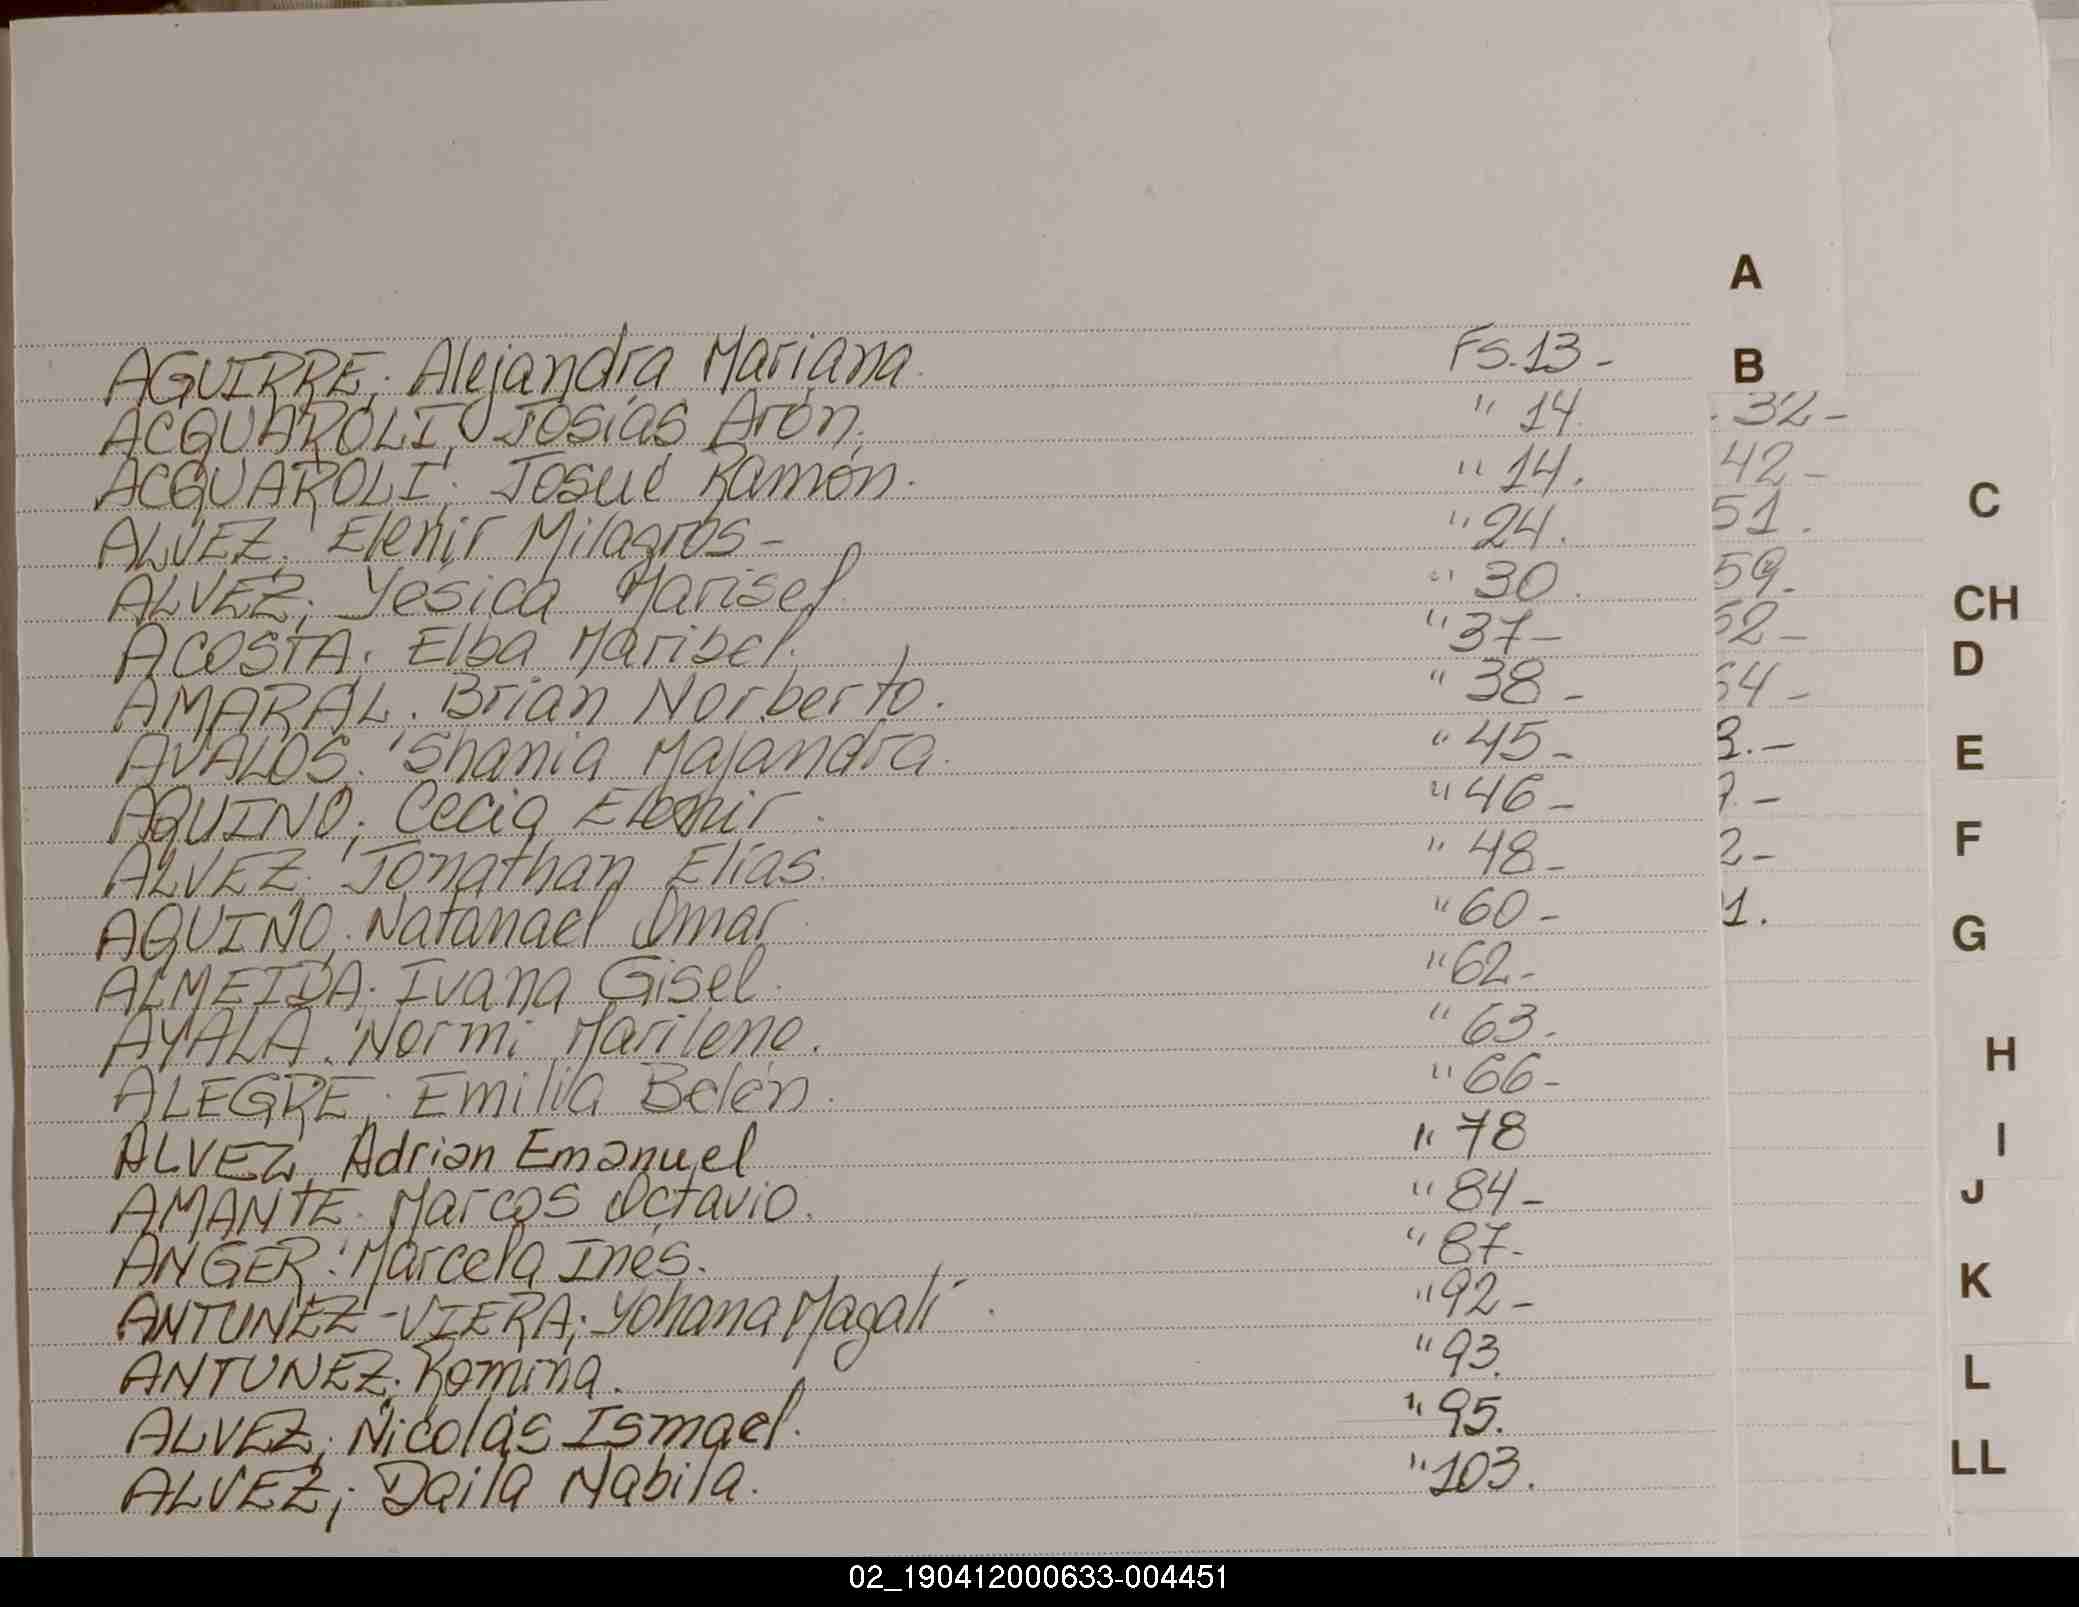 A
AGUIRRE; Alejandra Mariana. Fs.13-
B
ACQUAROLI, Josías Arón. " 14.
. 32-
ACQUAROLI; Josué Ramón. " 14.
42-
C
ALVEZ; Elenir Milagros- " 24.
51.
ALVEZ; Yesica Marisel " 30.
59.
CH
ACOSTA. Elba Maribel. " 37-
52-
D
AMARAL. Brian Norberto. " 38-
54-
AVALOS. Shania Majandra. " 45-
3.-
E
AQUINO; Cecia " 46-
.-
ALVEZ. Jonathan Elías. " 48-
2-
F
AQUINO; Natanael Omar. " 60-
1.
G
ALMEIDA. Ivana Gisel. " 62-
AYALA. Normi Marilene. " 63-
H
ALEGRE; Emilia Belén. " 66-
ALVEZ, Adrian Emanuel " 78
I
AMANTE. Marcos Octavio. " 84-
J
ANGER. Marcela Inés. " 87-
K
ANTUNEZ-VIERA; Yohana Magalí. " 92-
ANTUNEZ; Romina. " 93.
L
ALVEZ; Nicolás Ismael. " 95.
ALVEZ; Daila Nabila. " 103.
LL
02_190412000633-004451